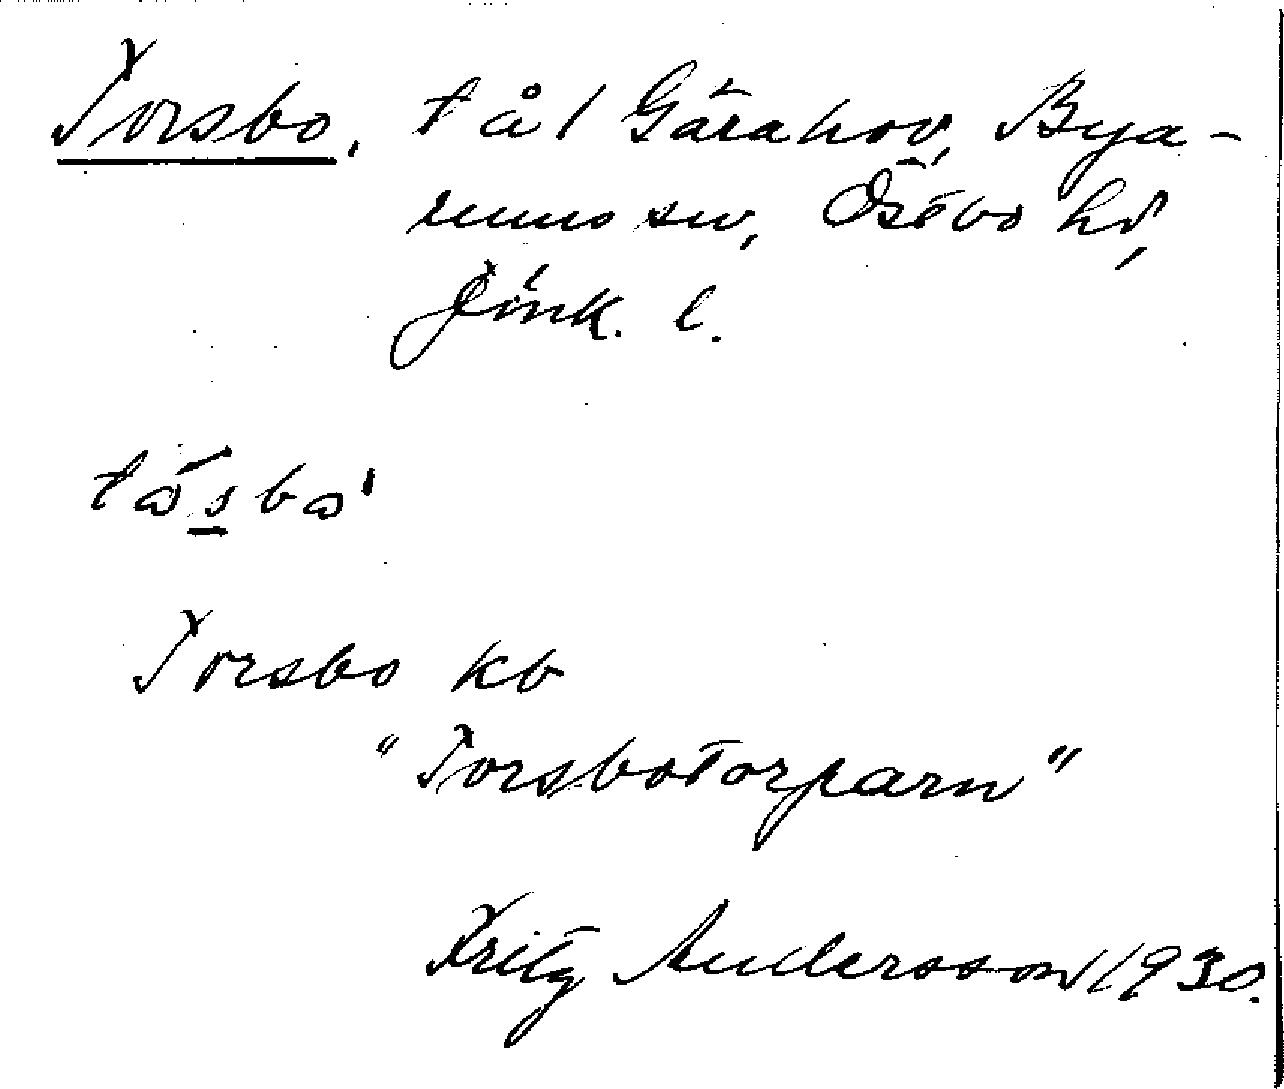 Torsbo, t å l Gärahov, Bya-
rums sn, Östbo hd,
Jönk. l.
tåsbo
Torsbo kb
"Torsbotorparn"
Fritz Andersson 1930.